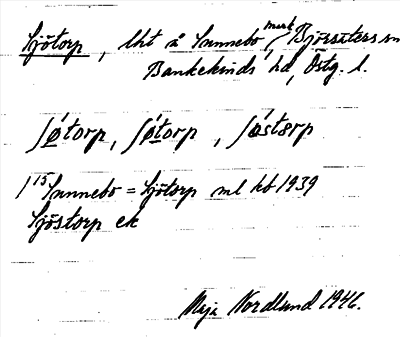 Sjötorp, lht å Sunnebo, mark Björsäters sn
Bankekinds hd, Östg. l.
ʃǿtorp, ʃǿtorp, ʃǿstɛrp
1/15 Sunnebo = Sjötorp ml hb 1939
Sjöstorp ek
Maja Nordlund 1946.